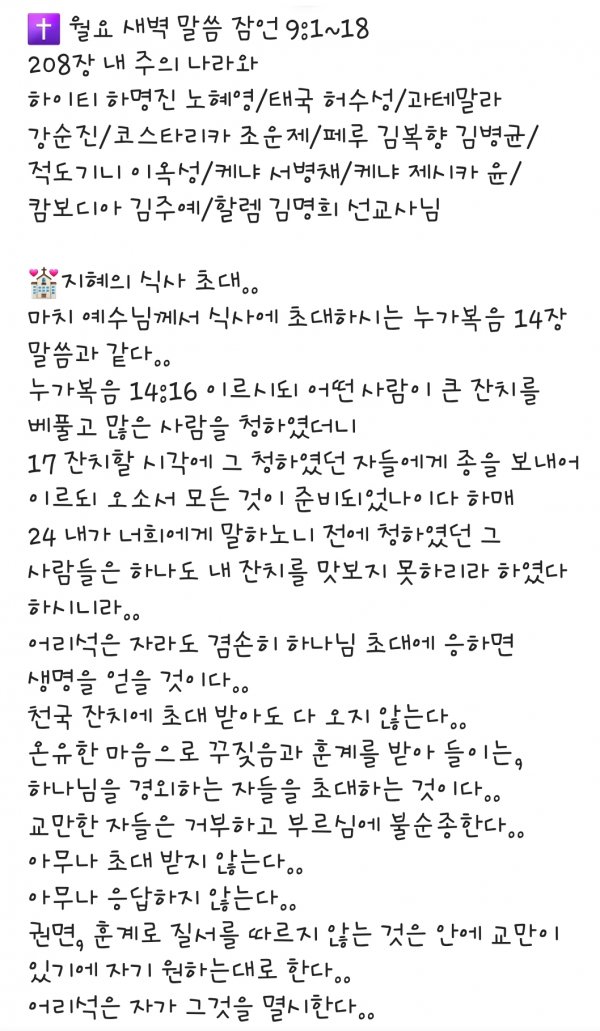 ✝️ 월요 새벽 말씀 잠언 9:1~18
208장 내 주의 나라와
하이티 하명진 노혜영/태국 허수성/과테말라
강순진/코스타리카 조운제/페루 김복향 김병균/
적도기니 이옥성/케냐 서병채/케냐 제시카 윤/
캄보디아 김주예/할렘 김명희 선교사님
💒지혜의 식사 초대..
마치 예수님께서 식사에 초대하시는 누가복음 14장
말씀과 같다..
누가복음 14:16 이르시되 어떤 사람이 큰 잔치를
베풀고 많은 사람을 청하였더니
17 잔치할 시각에 그 청하였던 자들에게 종을 보내어
이르되 오소서 모든 것이 준비되었나이다 하매
24 내가 너희에게 말하노니 전에 청하였던 그
사람들은 하나도 내 잔치를 맛보지 못하리라 하였다
하시니라..
어리석은 자라도 겸손히 하나님 초대에 응하면
생명을 얻을 것이다..
천국 잔치에 초대 받아도 다 오지 않는다..
온유한 마음으로 꾸짖음과 훈계를 받아 들이는,
하나님을 경외하는 자들을 초대하는 것이다..
교만한 자들은 거부하고 부르심에 불순종한다..
아무나 초대 받지 않는다..
아무나 응답하지 않는다..
권면, 훈계로 질서를 따르지 않는 것은 안에 교만이
있기에 자기 원하는대로 한다..
어리석은 자가 그것을 멸시한다..